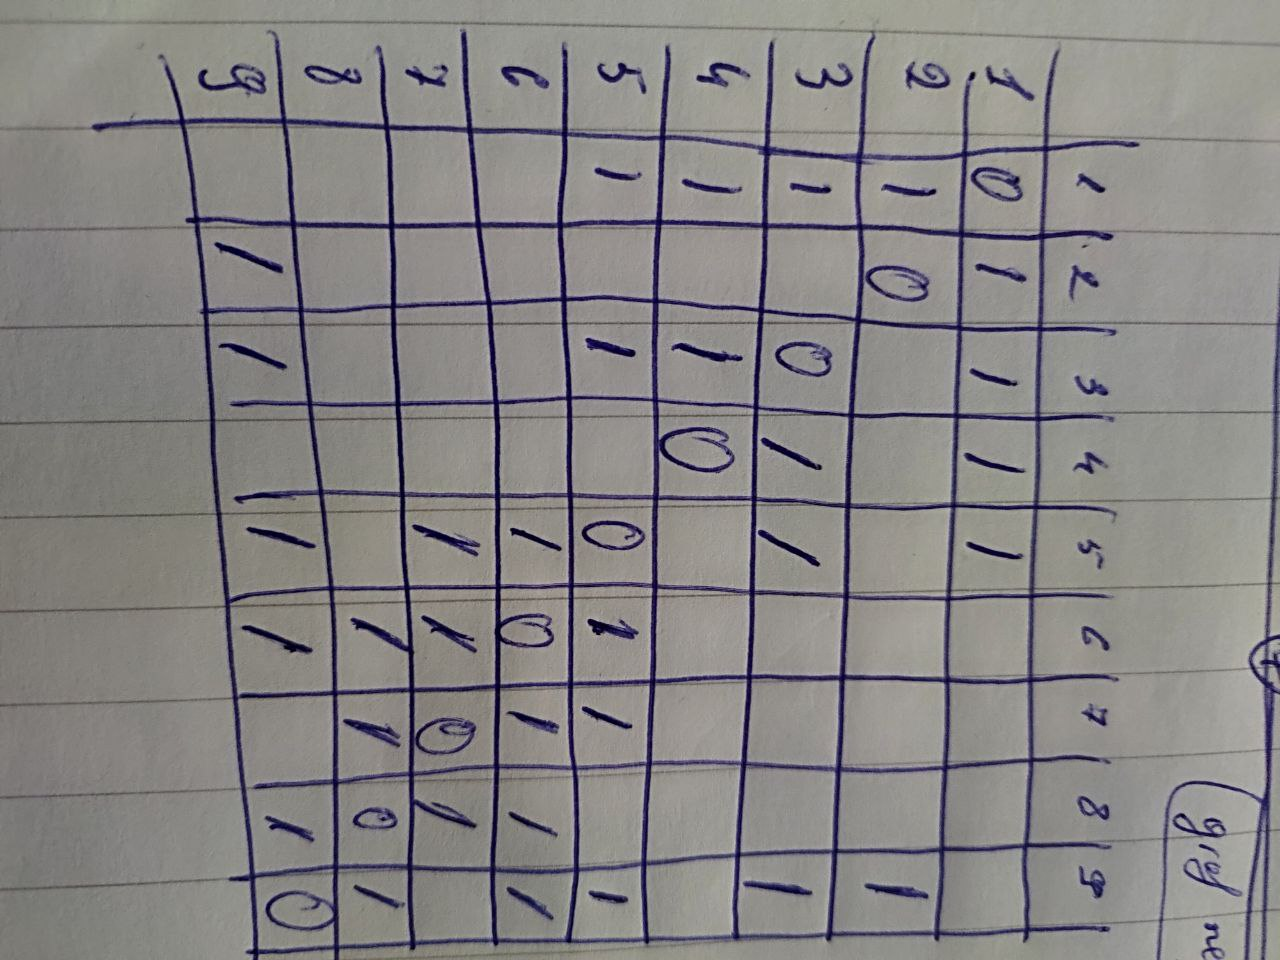 1 2 3 4 5 6 7 8 9
1 0 1 1 1 1
2 1 0 1
3 1 0 1 1 1
4 1 1 0
5 1 1 0 1 1 1
6 1 0 1 1 1
7 1 1 0 1
8 1 1 0 1
9 1 1 1 1 1 0